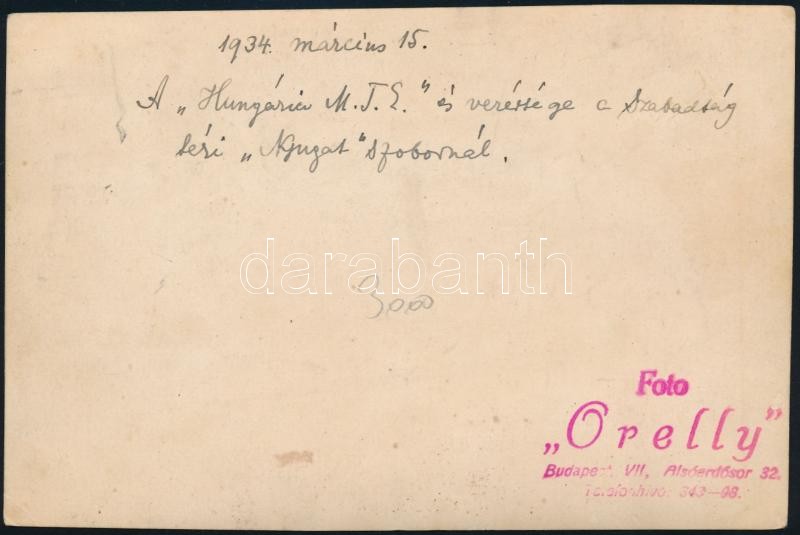 1934. március 15.
A „Hungária M.T.E." és verérsége a Szabadság
téri „Nyugat" szobornál.
darabanth
3000
Foto
„Orelly"
Budapest, VII, Alsóerdősor 32.
Telefonhívó: 343—98.